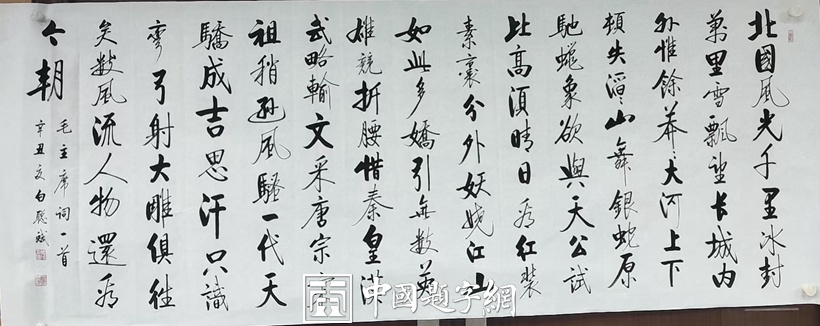 北國風光千里冰封
萬里雪飄望長城内
外惟餘莽々大河上下
頓失滔々山舞銀蛇原
馳蠟象欲與天公試
比高須晴日看紅裝
素裹分外妖嬈江山
如此多嬌引無數英
雄競折腰惜秦皇漢
武略輸文采唐宗宋
祖稍遜風騷一代天
驕成吉思汗只識
彎弓射大雕俱往
矣數風流人物還看
今朝
毛主席詞一首
辛丑夏白聰斌
中國題字網